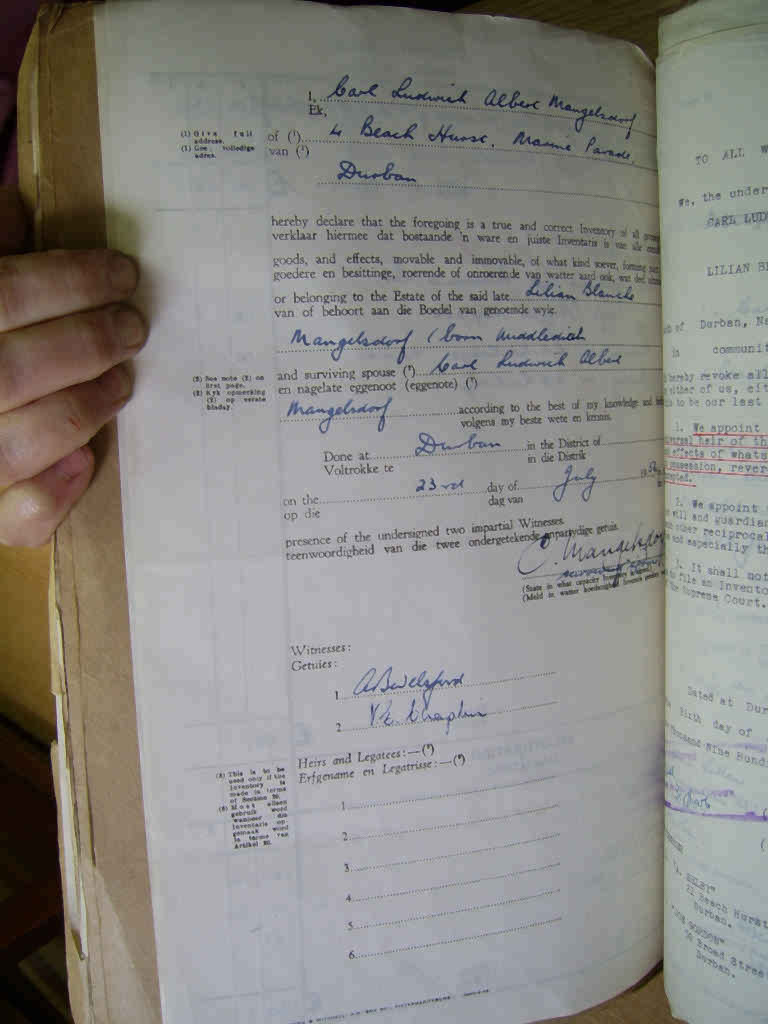 I, Carl Ludwich Albert Mangelsdorf
Ek,
(1) Give full address.
(1) Gee volledige adres.
of (¹) 4 Beach Hurst, Marine Parade,
van (¹)
Durban
hereby declare that the foregoing is a true and correct Inventory of all
verklaar hiermee dat bostaande 'n ware en juiste Inventaris is van alle
goods, and effects, movable and immovable, of what kind soever, forming part
goedere en besittinge, roerende of onroerende van watter aard ook, wat deel
or belonging to the Estate of the said late Lilian Blanche
van of behoort aan die Boedel van genoemde wyle.
Mangelsdorf (born Middleditch
(2) See note (2) on first page.
(2) Kyk opmerking (2) op eerste bladsy.
and surviving spouse (²) Carl Ludwich Albert
en nagelate eggenoot (eggenote) (²)
Mangelsdorf according to the best of my knowledge and
volgens my beste wete en kennis.
Done at Durban in the District of
Voltrokke te in die Distrik
on the 23rd day of July 19
op die dag van
presence of the undersigned two impartial Witnesses.
teenwoordigheid van die twee ondergetekende onpartydige getuis.
C. Mangelsdorf
surviving spouse
(State in what capacity Inventory is signed)
(Meld in watter hoedanigheid
Witnesses:
Getuies:
1
2
Heirs and Legatees:—(³)
Erfgename en Legatrisse:—(³)
(3) This is to be used only if the Inventory is made in terms of Section 30.
(3) Moet alleen gebruik word wanneer die Inventaris opgemaak word in terme van Artikel 30.
1
2
3
4
5
6
TO ALL W
We, the under
CARL LUD
LILIAN BL
of Durban, Na
in communit
hereby revoke all
either of us, eit
to be our last
1. We appoint
universal heir of th
effects of whats
possession, rever
2. We appoint
will and guardian
each other reciprocal
and especially th
3. It shall not
to file an Invento
the Supreme Court.
Dated at Dur
day of
Thousand Nine Hund
21 Beach Hurst
Durban.
GORDON"
Broad Stree
Durban.